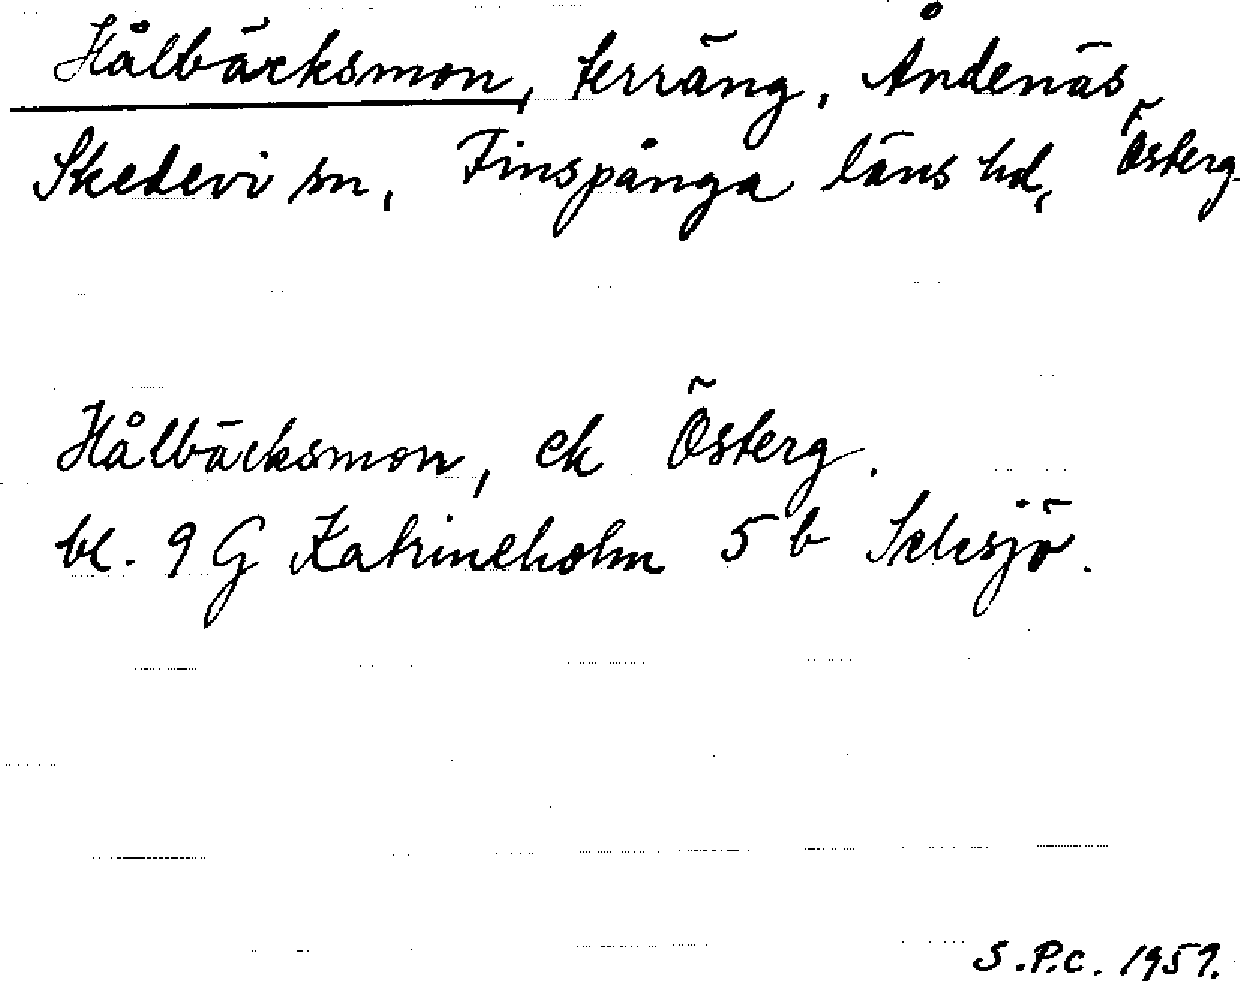 Hålbäcksmon, terräng, Åndenäs,
Skedevi sn, Finspånga läns hd, Österg.
Hålbäcksmon, ek Österg.
bl. 9 G Katrineholm 5 b
S.P.C. 1959.